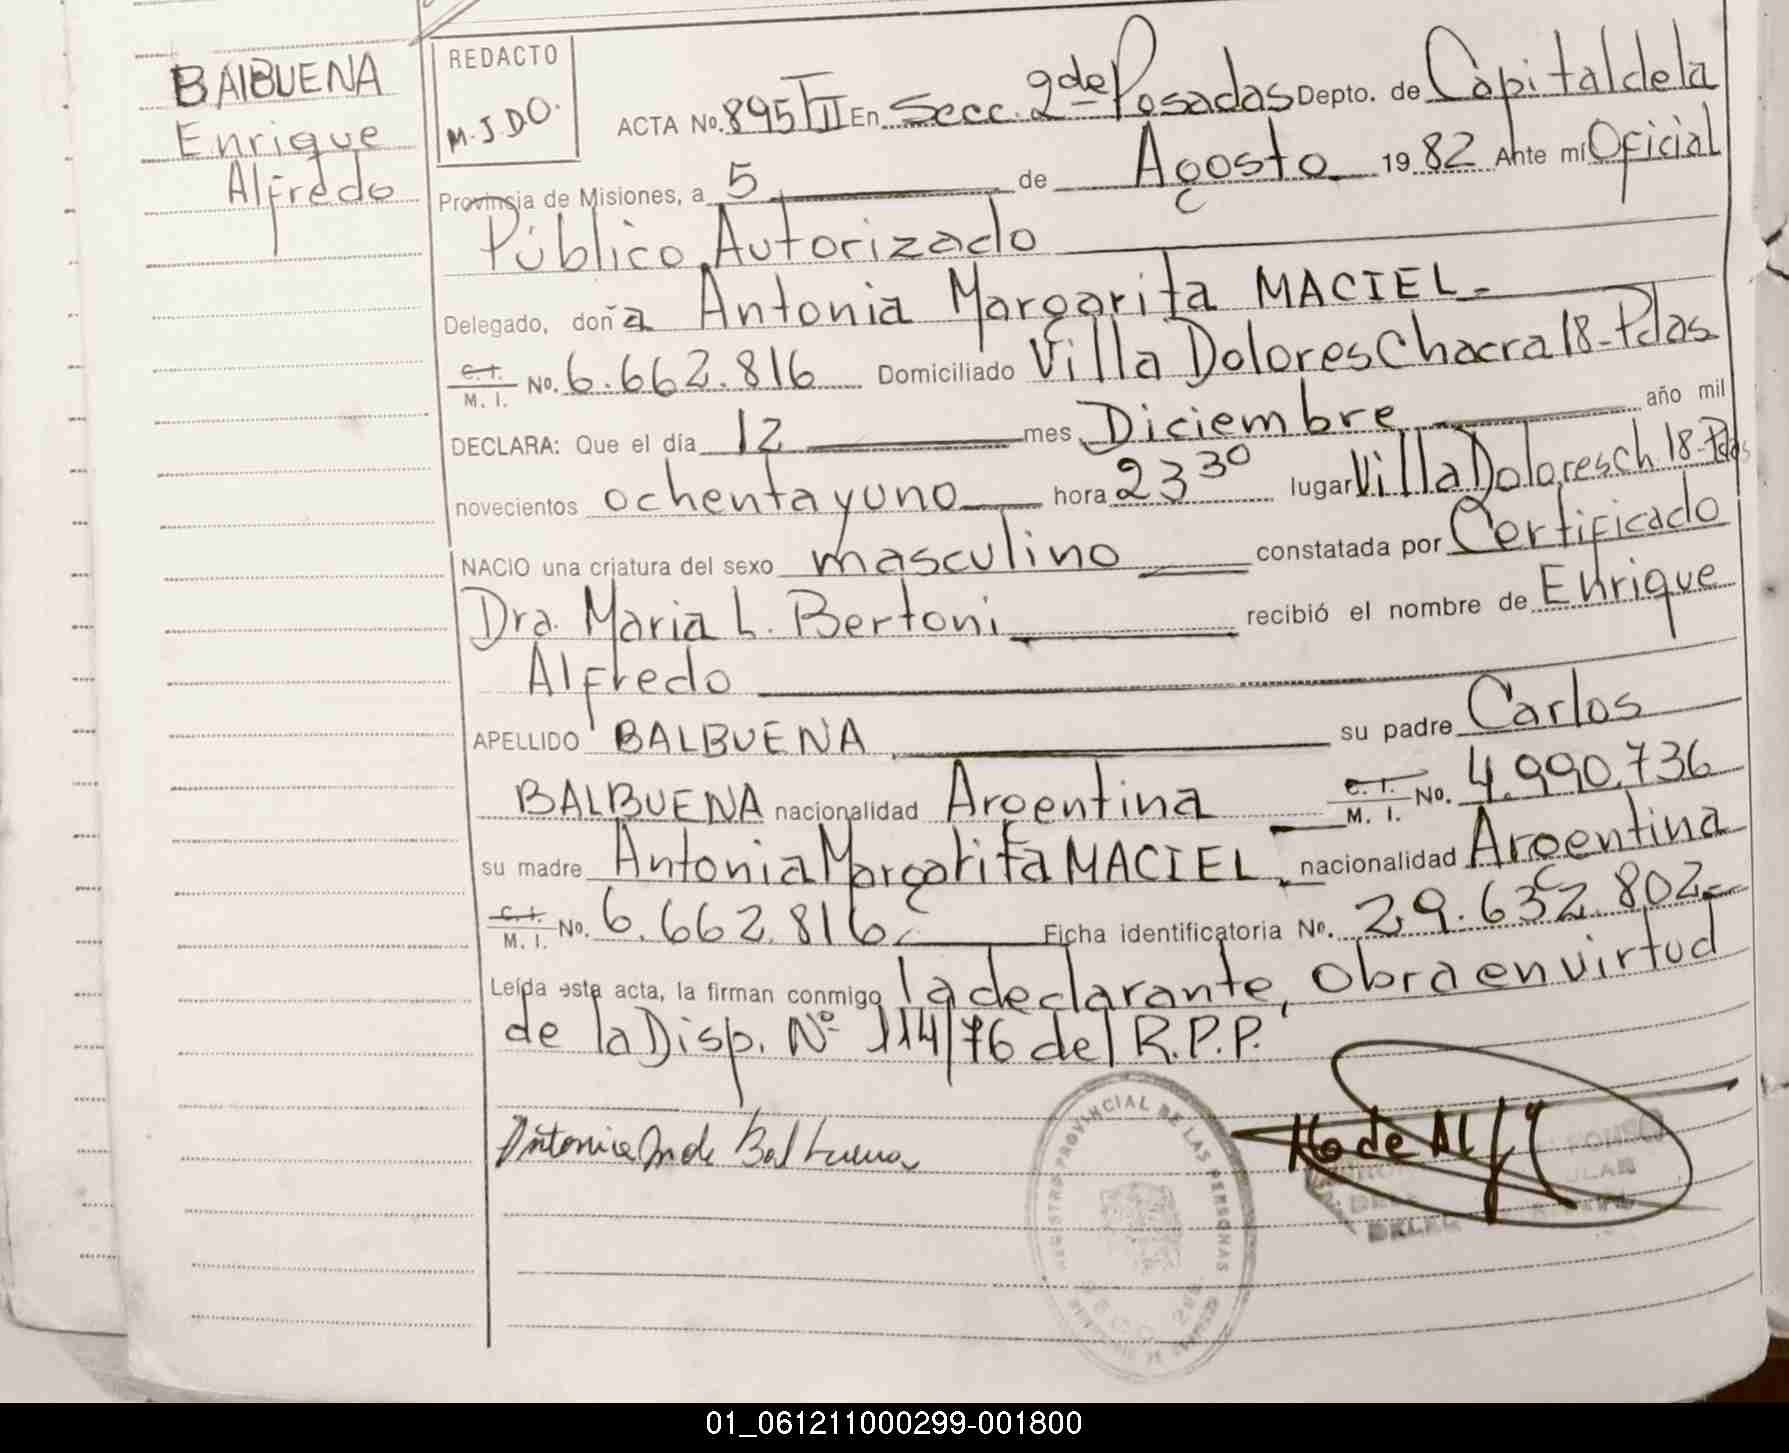 BALBUENA
Enrique
Alfredo
REDACTO
M.J.DO.
ACTA No. 895 TII En Secc. 2da de Posadas Depto. de Capital de la
Provincia de Misiones, a 5 de Agosto 1982 Ante mí Oficial
Público Autorizado
Delegado, doña Antonia Margarita MACIEL.-
C.I. M. I. No. 6.662.816 Domiciliado Villa Dolores Chacra 18-Pdas
DECLARA: Que el día 12 mes Diciembre año mil
novecientos ochenta y uno hora 23 30 lugar Villa Dolores Ch. 18-Pdas
NACIO una criatura del sexo masculino constatada por Certificado
Dra. Maria L. Bertoni recibió el nombre de Enrique
Alfredo
APELLIDO BALBUENA su padre Carlos
BALBUENA nacionalidad Argentina C.I. M. I. No. 4.990.736
su madre Antonia Margarita MACIEL nacionalidad Argentina
C.I. M. I. No. 6.662.816 Ficha identificatoria No. 29.632.802-
Leída esta acta, la firman conmigo la declarante, obra en virtud
de la Disp. Nº 114/76 del R.P.P.
Antonia M de Balbuena
REGISTRO PROVINCIAL DE LAS PERSONAS
01_061211000299-001800